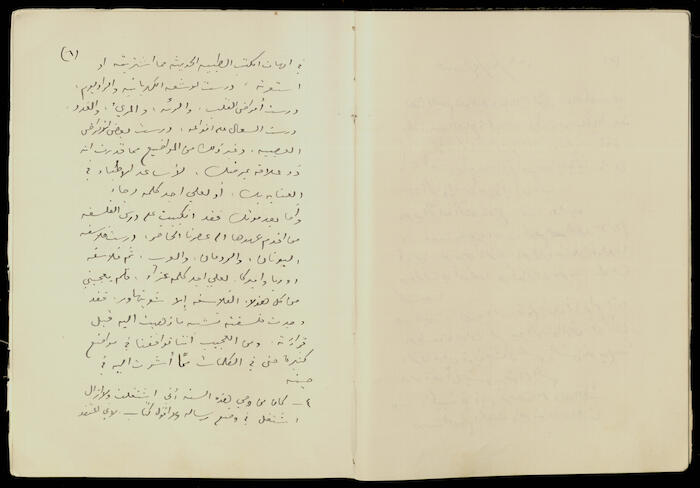 (٦)
في امهات الكتب الطبيه الحديثه مما اشتريته او
استعرته ، درست الاشعه الكهربائيه والراديوم ،
درست أمراض القلب ، والرئه ، والمريء ، والغدد ،
درست السعال على انواعه ، ودرست بعض الامراض
العصبيه ، وغير ذلك من المواضيع مما قدرت انه
ذو علاقة بمرضك ، لأساعد الاطباء في
العنايه بك ، أو لعلي اجد كلمة رجاء
وأما بعد موتك فقد انكببت على درس الفلسفه
من اقدم عهدها الى عصرنا الحاضر ، درست فلاسفه
اليونان ، والرومان ، والعرب ، ثم فلاسفة
اوروبا واميركا ، لعلي اجد كلمة عزاء ، فلم يعجبني
من كل هؤلاء الفلاسفه إلا شوبنهاور ، فقد
وجدت فلسفته تشبه ما ذهبت اليه قبل
قراءته ، ومن العجيب أننا توافقنا في مواضع
كثيرة حتى في الكلمات ممّا أشرت اليه في
حينه
٤ـ كان من وحي هذه السنه أني اشتغلت ولا ازال
اشتغل في وضع رساله ولا اقول كتاب ، لاني اعتقد